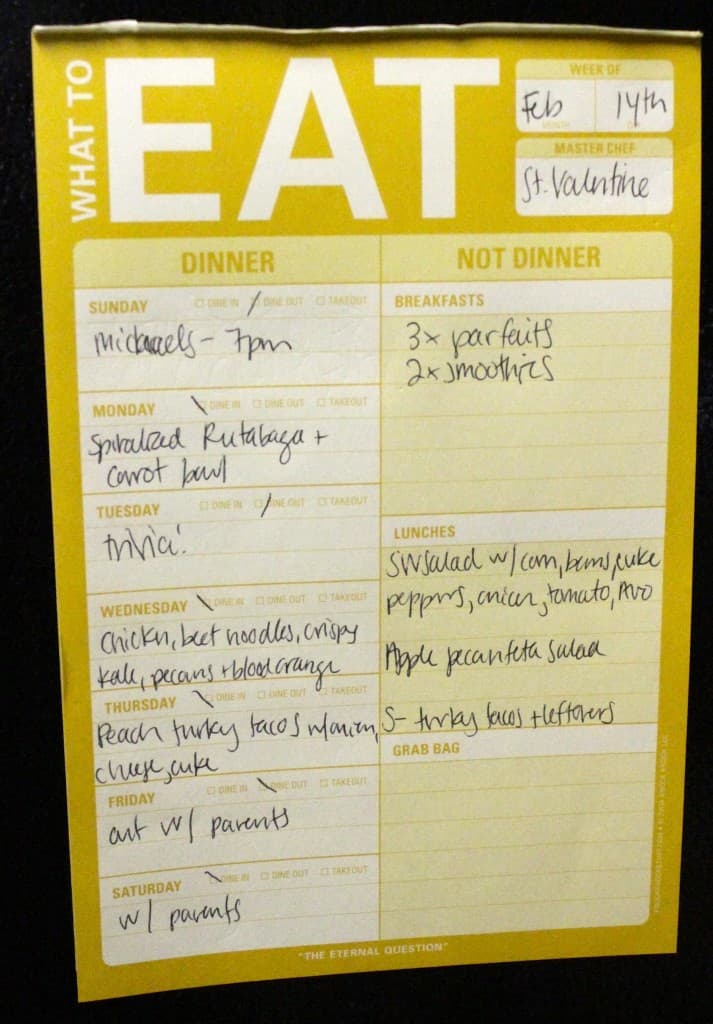 WHAT TO
EAT
WEEK OF
Feb 14th
MONTH
MASTER CHEF
St. Valentine
DINNER
SUNDAY DINE IN DINE OUT TAKEOUT
michaels - 7pm
MONDAY DINE IN DINE OUT TAKEOUT
Spiralized Rutabaga +
carrot bowl
TUESDAY DINE IN DINE OUT TAKEOUT
trivia!
WEDNESDAY DINE IN DINE OUT TAKEOUT
Chicken, beet noodles, crispy
kale, pecans + blood orange
THURSDAY DINE IN DINE OUT TAKEOUT
Peach turky tacos w/onion,
cheese, cuke
FRIDAY DINE IN DINE OUT TAKEOUT
out w/ parents
SATURDAY DINE IN DINE OUT TAKEOUT
w/ parents
NOT DINNER
BREAKFASTS
3x parfaits
2x smoothies
LUNCHES
SW salad w/ corn, beans, cuke
peppers, onion, tomato, Avo
Apple pecan feta salad
S- turky tacos + leftovers
GRAB BAG
"THE ETERNAL QUESTION"